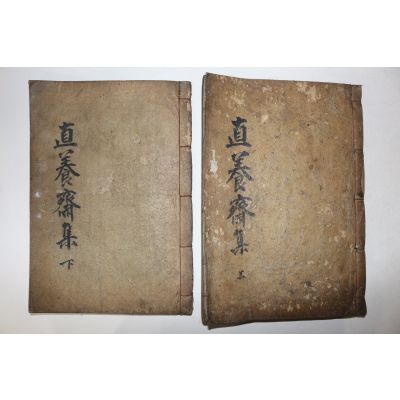 直養齋集
直養齋集
下